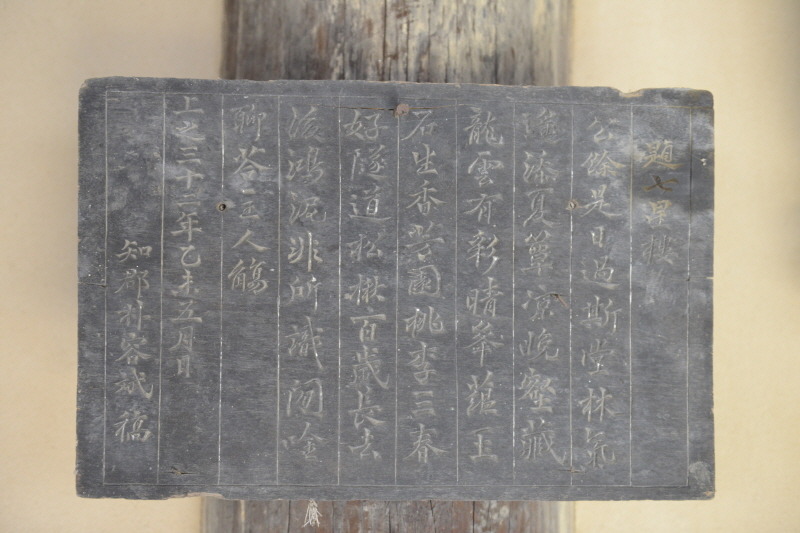 題七星樓
公餘是日過斯堂林氣
遙添夏簟凉晩壑藏
龍雲有彩晴峯蘊玉
石生香營園桃李三春
好隧道松楸百歲長去
後鴻泥非所識閒唫
聊答主人觴
上之三十二年乙未五月日
知郡村客試稿